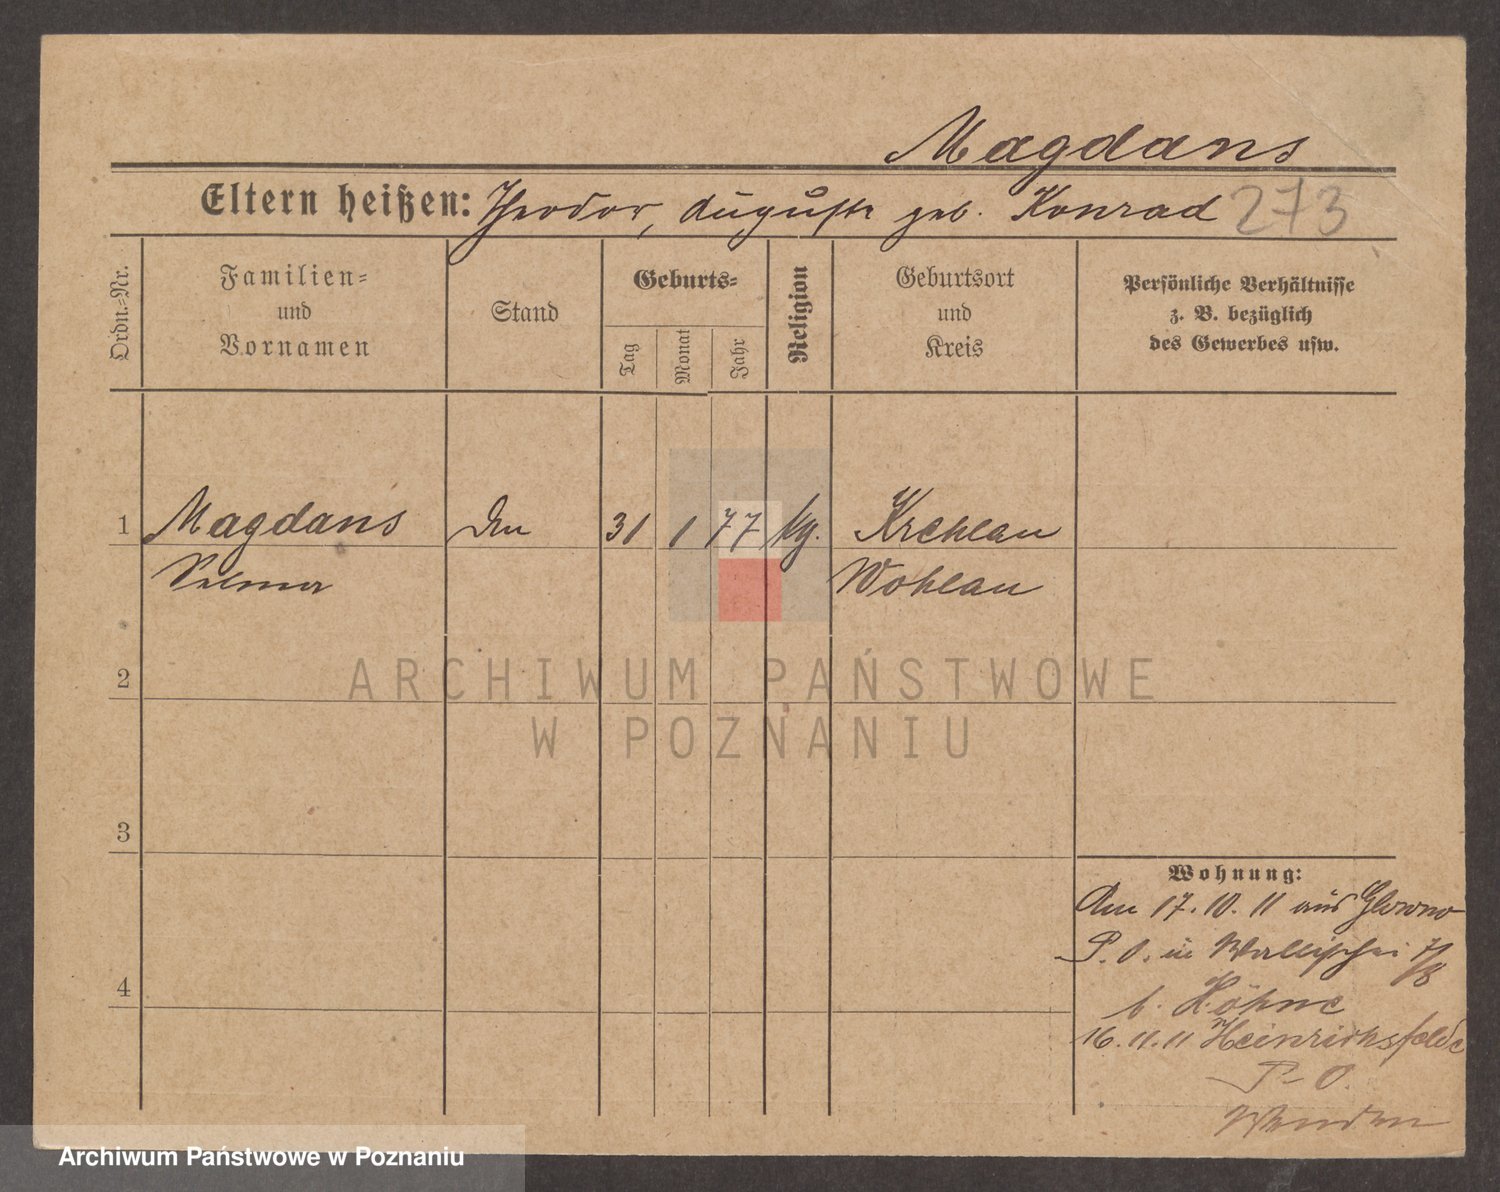 Magdans
Eltern heißen: Theodor, Auguste geb. Konrad 273
Ordn.-Nr.
Familien- und Vornamen
Stand
Geburts-
Tag
Monat
Jahr
Religion
Geburtsort und Kreis
Persönliche Verhältnisse
z. B. bezüglich
des Gewerbes usw.
1 Magdans 31 1 77 Krehlau
Selma Wohlau
2
3
4
Wohnung:
Am 17.10.11 aus Glowno
P. O. in Wallischei 7/8
b. Höhne
16.11.11 Heinrichsfelde
P-O.
ARCHIWUM PAŃSTWOWE
W POZNANIU
Archiwum Państwowe w Poznaniu